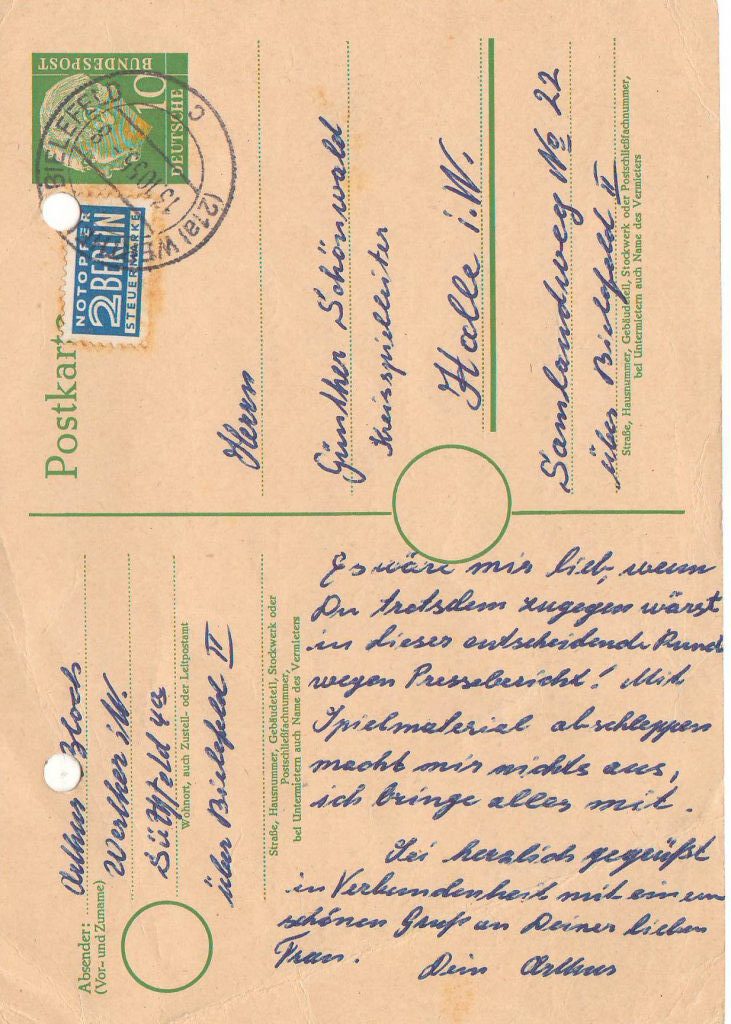 Absender:
Arthur Bloch
(Vor- und Zuname)
Werther i. W.
Süthfeld 4a
Wohnort, auch Zustell- oder Leitpostamt
über Bielefeld II
Straße, Hausnummer, Gebäudeteil, Stockwerk oder
Postschließfachnummer,
bei Untermietern auch Name des Vermieters
Es wäre mir lieb, wenn
Du trotsdem zugegen wärst
in dieser entscheidende Rund
wegen Pressebericht! Mit
Spielmaterial abschleppen
macht mir nichts aus,
ich bringe alles mit.
Sei herzlich gegrüßt
in Verbundenheit mit einem
schönen Gruß an Deiner lieben
Frau.
Dein Arthur
Postkarte
NOTOPFER
2 BERLIN
STEUERMARKE
DEUTSCHE
BUNDESPOST
10
(21a) BIELEFELD
Herrn
Günther Schönwald
Kreisspielleiter
Halle i. W.
Samlandweg No 22
über Bielefeld II
Straße, Hausnummer, Gebäudeteil, Stockwerk oder Postschließfachnummer,
bei Untermietern auch Name des Vermieters